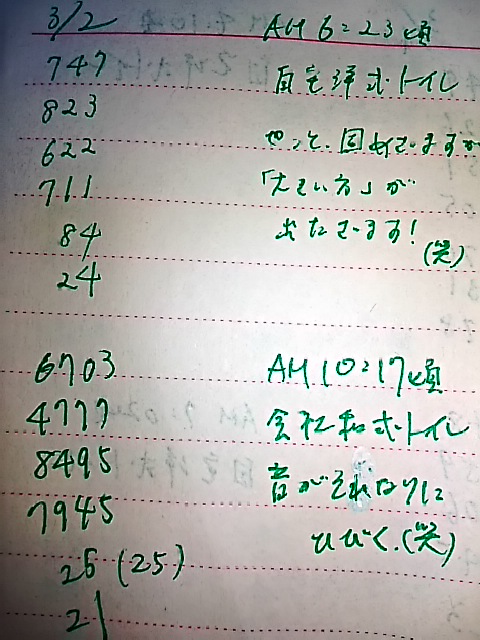 3/2 AM 6:23頃
747 自宅洋式トイレ
823
622 やっと、固めていますが
711 「大きい方」が
84 出たさまます!
24 (笑)
6703 AM 10:17頃
4777 会社和式トイレ
8495 音がそれなりに
7945 ひびく.(笑)
26 (25)
21